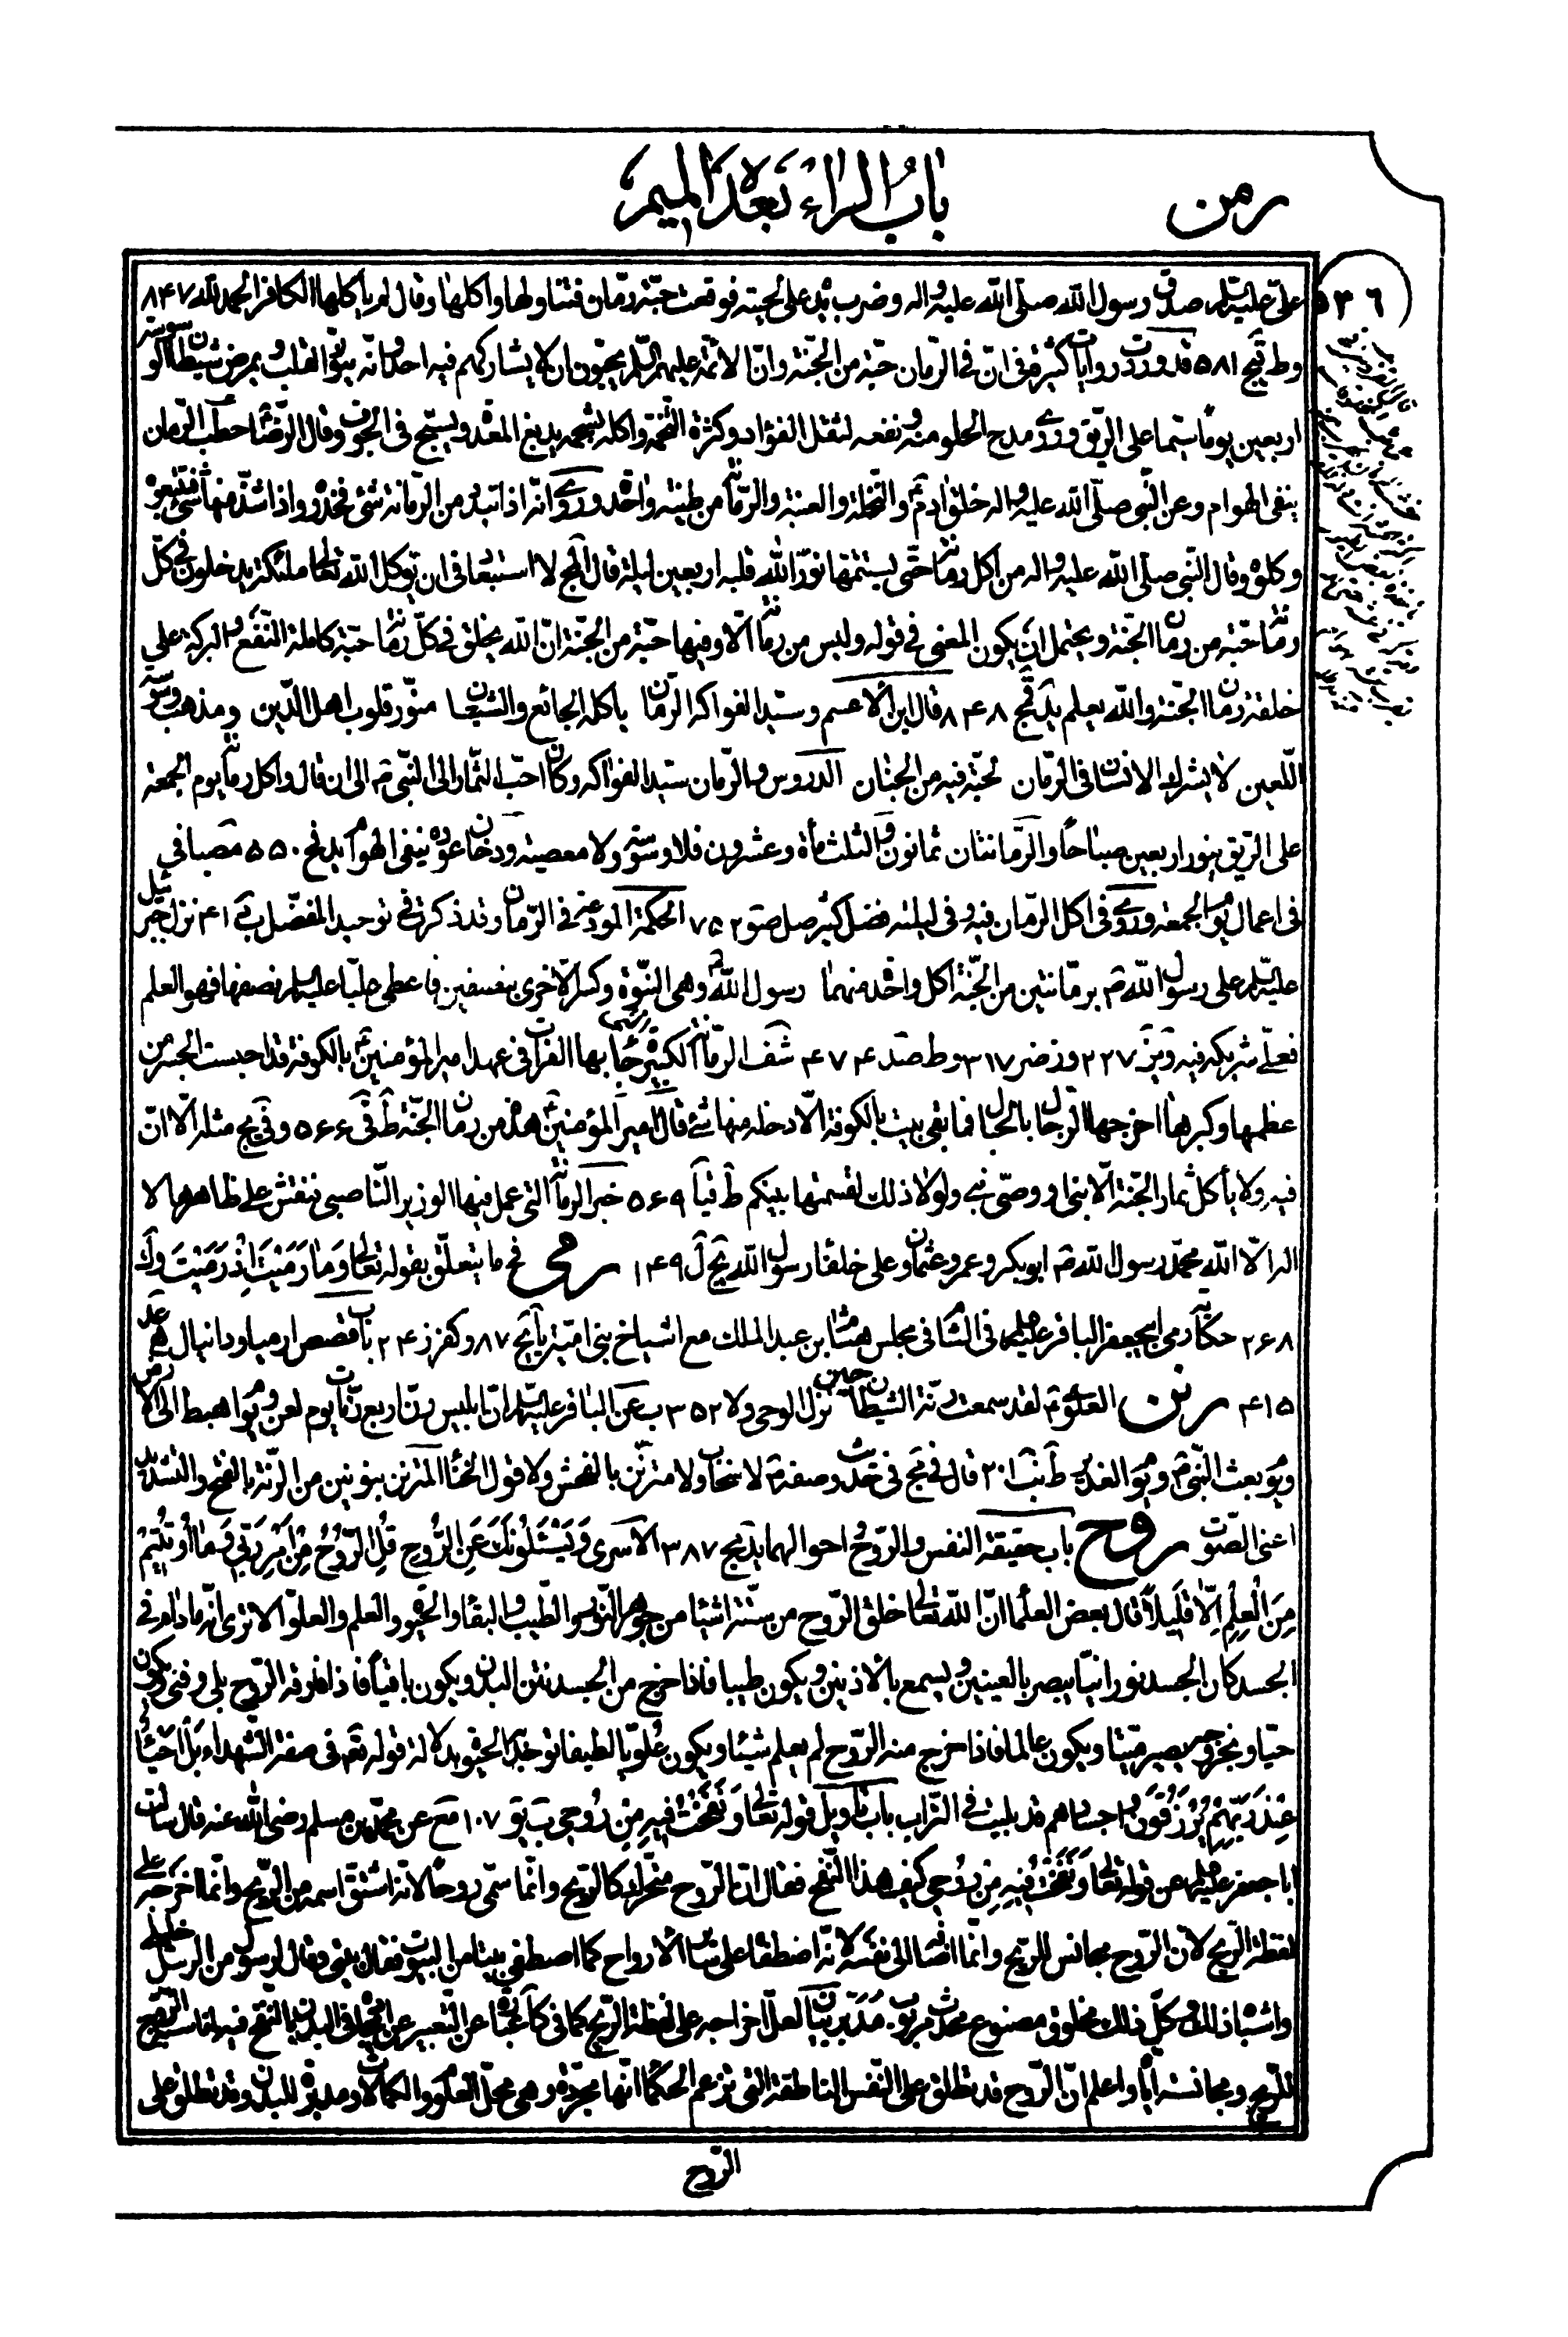 رمن
باب الراء بعد الميم
٥٣٦
علىّ عليه السلم صدق رسول الله صلى الله عليه واله وضرب يده على لحيته فوقعت حبّة رمّان فتناولها واكلها وقال لم ياكلها الكافر الحمد لله ٨٤٧
وط قيج ٥٨١ قد وردت روايات كثيرة فى انّ فى الرّمان حبّة من الجنّة وانّ الائمّة عليهم السّلم يحبّون ان لا يشاركهم فيه احد وانّه ينوّر القلب ويمرض شيطان الوسوسة
اربعين يوماً سيّما على الريق وورد مدح الحلو منه ونفعه لثقل الفؤاد وكثرة التّخمة واكله بشحمه يدبغ المعدة ويسبّح فى الجوف وقال الرضا حطب الرّمان
ينفى الهوام وعن النّبى صلّى الله عليه واله خلق ادم والنّخلة والعنبة والرّمانة من طينة واحدة وورد انّه اذا تبدّد من الرّمانة شئ فخذوه واذا شذّ منها شئ فتتبعوه
وكلوه وقال النّبى صلى الله عليه واله من اكل رمانة حتّى يستتمّها نوّر الله قلبه اربعين ليلة قال المج لا استبعاد فى ان يوكل الله تعالى ملئكة يدخلون فى كلّ
رمانة حبّة من رمان الجنّة ويحتمل ان يكون المعنى فى قوله وليس من رمانة الّا وفيها حبّة من الجنّة انّ الله يخلق فى كلّ رمانة حبّة كاملة النّفع والبركة على
خلقة رمان الجنّة والله يعلم يد قج ٨٤٨ قال ابن الاعسم وسيّد الفواكه الرّمان ياكله الجائع والشبعان منوّر قلوب اهل الدّين ومذهب وسوسة
اللّعين لا يشرك الانسان فى الرّمان لحبّة فيه من الجنان الدروس والرّمان سيّد الفواكه وكان احبّ الثّمار الى النّبى ص الى ان قال واكل رمانة يوم الجمعة
على الريق ينوّر اربعين صباحاً والرّمانتان ثمانون والثلث مأة وعشرون فلا وسوسة ولا معصية ودخان عوده ينفى الهوام يد قج ٥٥٠ مصبا فى
فى اعمال يوم الجمعة وروى فى اكل الرّمان فيه وفى ليلته فضل كثير صل صو ٧٥٢ الحكمة المودعة فى الرّمان وقد ذكرت فى توحيد المفضّل ب ٤١ نزل جبرئيل
عليه السّلم على رسول الله ص برمّانتين من الجنّة اكل واحدة منهما رسول الله وهى النّبوّة وكسر الاخرى بنصفين فاعطى عليّا عليه السلم نصفها فهو العلم
فعلىّ شريكه فيه ويز ٢٢٧ وز ضر ٣١٧ وط صد ٤٧٤ شف الرّمانة الكبيرة جاء بها الفرات فى عهد امير المؤمنين بالكوفة قد احبست الجسر من
عظمها وكبرها اخرجها الرجال بالحبال فما بقى بيت بالكوفة الّا دخله منها شئ قال امير المؤمنين هذه من رمان الجنّة ط قى ٥٦٦ وفى يج مثله الّا انّ
فيه ولا يأكل ثمار الجنّة الّا نبى او وصى نبى ولولا ذلك لقسمتها بينكم ط قيا ٥٦٩ خبر الرمانة الّتى عمل فيها الوزير النّاصبى نقش على ظاهرها لا
اله الّا الله محمّد رسول الله ص ابو بكر وعمر وعثمان وعلى خلفاء رسول الله يج ل ١٤٩ رمى فج ما يتعلّق بقوله تعالى وَمَا رَمَيْتَ اِذْ رَمَيْتَ
٢٦٨ حكاية رمى ابيجعفر الباقر عليه السلم فى الشام فى مجلس هشام بن عبد الملك مع اشياخ بنى اميّة يا يج ٨٧ وكفر ز ٢٤ باب قصص ارميا ودانيال
٤١٥ رنن العلوى لقد سمعت رنّة الشيطان حين نزل الوحى ولا ٣٥٢ ب عن الباقر عليه السلم انّ ابليس رنّ اربع رنات يوم لعن ويوم اهبط الى الارض
ويوم بعث النّبى ص ويوم الغدير ط نب ٢٠١ قال فى نج فى حديث وصفه ص لا سخاب ولا مترنّن بالفحش ولا قول الخنا المترنن بنونين من الرنّة بالفتح والتشديد
اعنى الصّوت روح باب حقيقة النفس والرّوح واحوالهما يد مج ٣٨٧ الاسرى وَيَسْئَلُونَكَ عَنِ الرُّوحِ قُلِ الرُّوحُ مِنْ اَمْرِ رَبّى وَمَا اُوتيتُمْ
مِنَ الْعِلْمِ اِلّا قَليلاً قال بعض العلماء انّ الله تعالى خلق الرّوح من ستّة اشياء من جوهر النّور والطّيب والبقاء والحيوة والعلم والعلوّ الا ترى انّه مادام فى
الجسد كان الجسد نورانيّا يبصر بالعينين ويسمع بالاذنين ويكون طيبا فاذا خرج من الجسد نتن البدن ويكون باقياً فاذا فارقه الرّوح بلى وفنى ويكون
حيّا وبخروجه يصير ميّتا ويكون عالما فاذا خرج منه الرّوح لم يعلم شيئا ويكون علويّا لطيفا توجد به الحيوة بدلالة قوله تعالى فى صفة الشّهداء بَلْ اَحْياءٌ
عِنْدَ رَبّهِمْ يُرْزَقُونَ واجسادهم قد بليت فى التّراب باب تاويل قوله تعالى وَنَفَخْتُ فيهِ مِنْ رُوحى ب يو ١٠٧ مع عن محمّد بن مسلم رضى الله عنه قال سالت
ابا جعفر عليه السلم عن قوله تعالى وَنَفَخْتُ فيهِ مِنْ رُوحى كيف هذا النّفخ فقال انّ الرّوح متحرّك كالريح وانّما سمّى روحاً لانّه اشتقّ اسمه من الرّيح وانّما اخرجه على
لفظة الريح لانّ الرّوح مجانس للريح وانّما اضافه الى نفسه لانّه اصطفاه على سائر الارواح كما اصطفى بيتا من البيوت فقال بيتى وقال لرسول من الرسل خليلى
واشباه ذلك وكلّ ذلك مخلوق مصنوع محدث مربوب مدبّر بيان لعلّ اخراجه على لفظة الريح كما فى كا عبارة عن التّعبير عن ايجاده فى البدن بالنّفخ فيه لمناسبة الرّوح
للريح ومجانسته ايّاه واعلم انّ الرّوح قد تطلق على النّفس الناطقة التى تزعم الحكماء انّها مجرّدة وهى محلّ العلوم والكمالات ومدبّرة للبدن وقد تطلق على
الرّوح